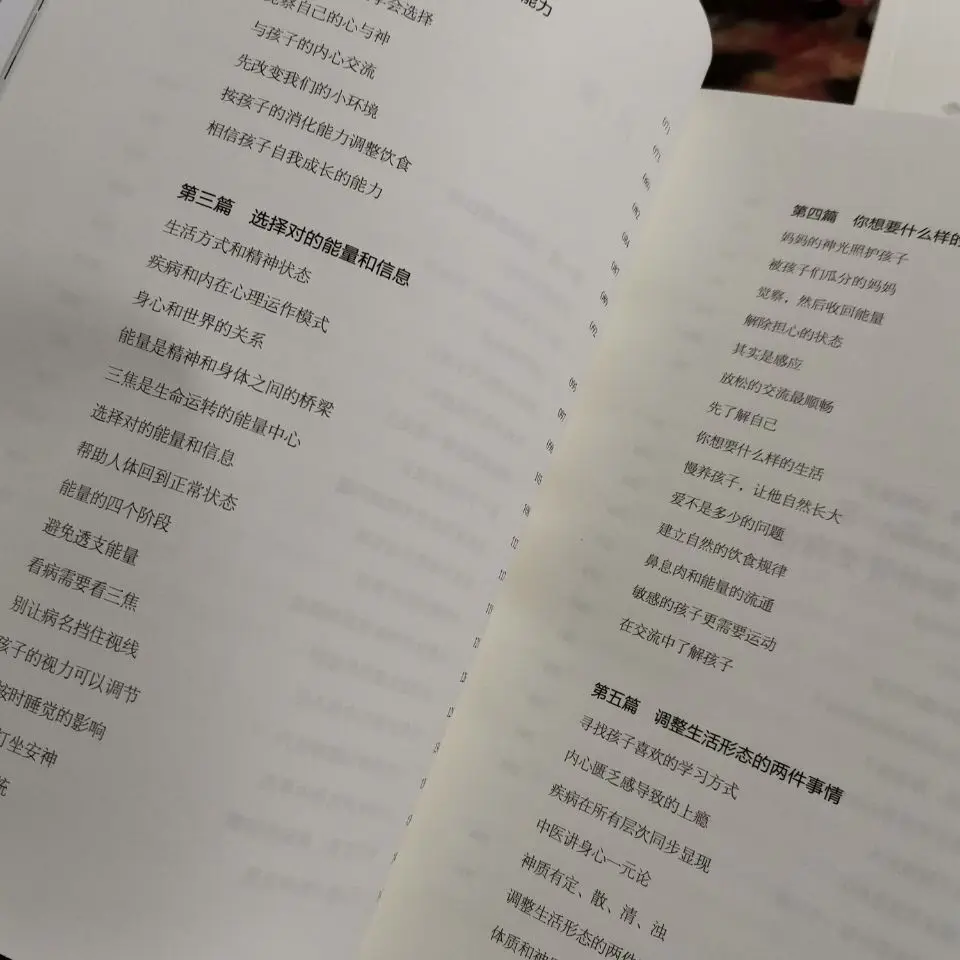 能力
学会选择
觉察自己的心与神
与孩子的内心交流
先改变我们的小环境
按孩子的消化能力调整饮食
相信孩子自我成长的能力
第三篇 选择对的能量和信息
生活方式和精神状态
疾病和内在心理运作模式
身心和世界的关系
能量是精神和身体之间的桥梁
三焦是生命运转的能量中心
选择对的能量和信息
帮助人体回到正常状态
能量的四个阶段
避免透支能量
看病需要看三焦
别让病名挡住视线
孩子的视力可以调节
按时睡觉的影响
打坐安神
统
第四篇 你想要什么样的
妈妈的神光照护孩子
被孩子们瓜分的妈妈
觉察，然后收回能量
解除担心的状态
其实是感应
放松的交流最顺畅
先了解自己
你想要什么样的生活
慢养孩子，让他自然长大
爱不是多少的问题
建立自然的饮食规律
鼻息肉和能量的流通
敏感的孩子更需要运动
在交流中了解孩子
第五篇 调整生活形态的两件事情
寻找孩子喜欢的学习方式
内心匮乏感导致的上瘾
疾病在所有层次同步显现
中医讲身心一元论
神质有定、散、清、浊
调整生活形态的两件
体质和神